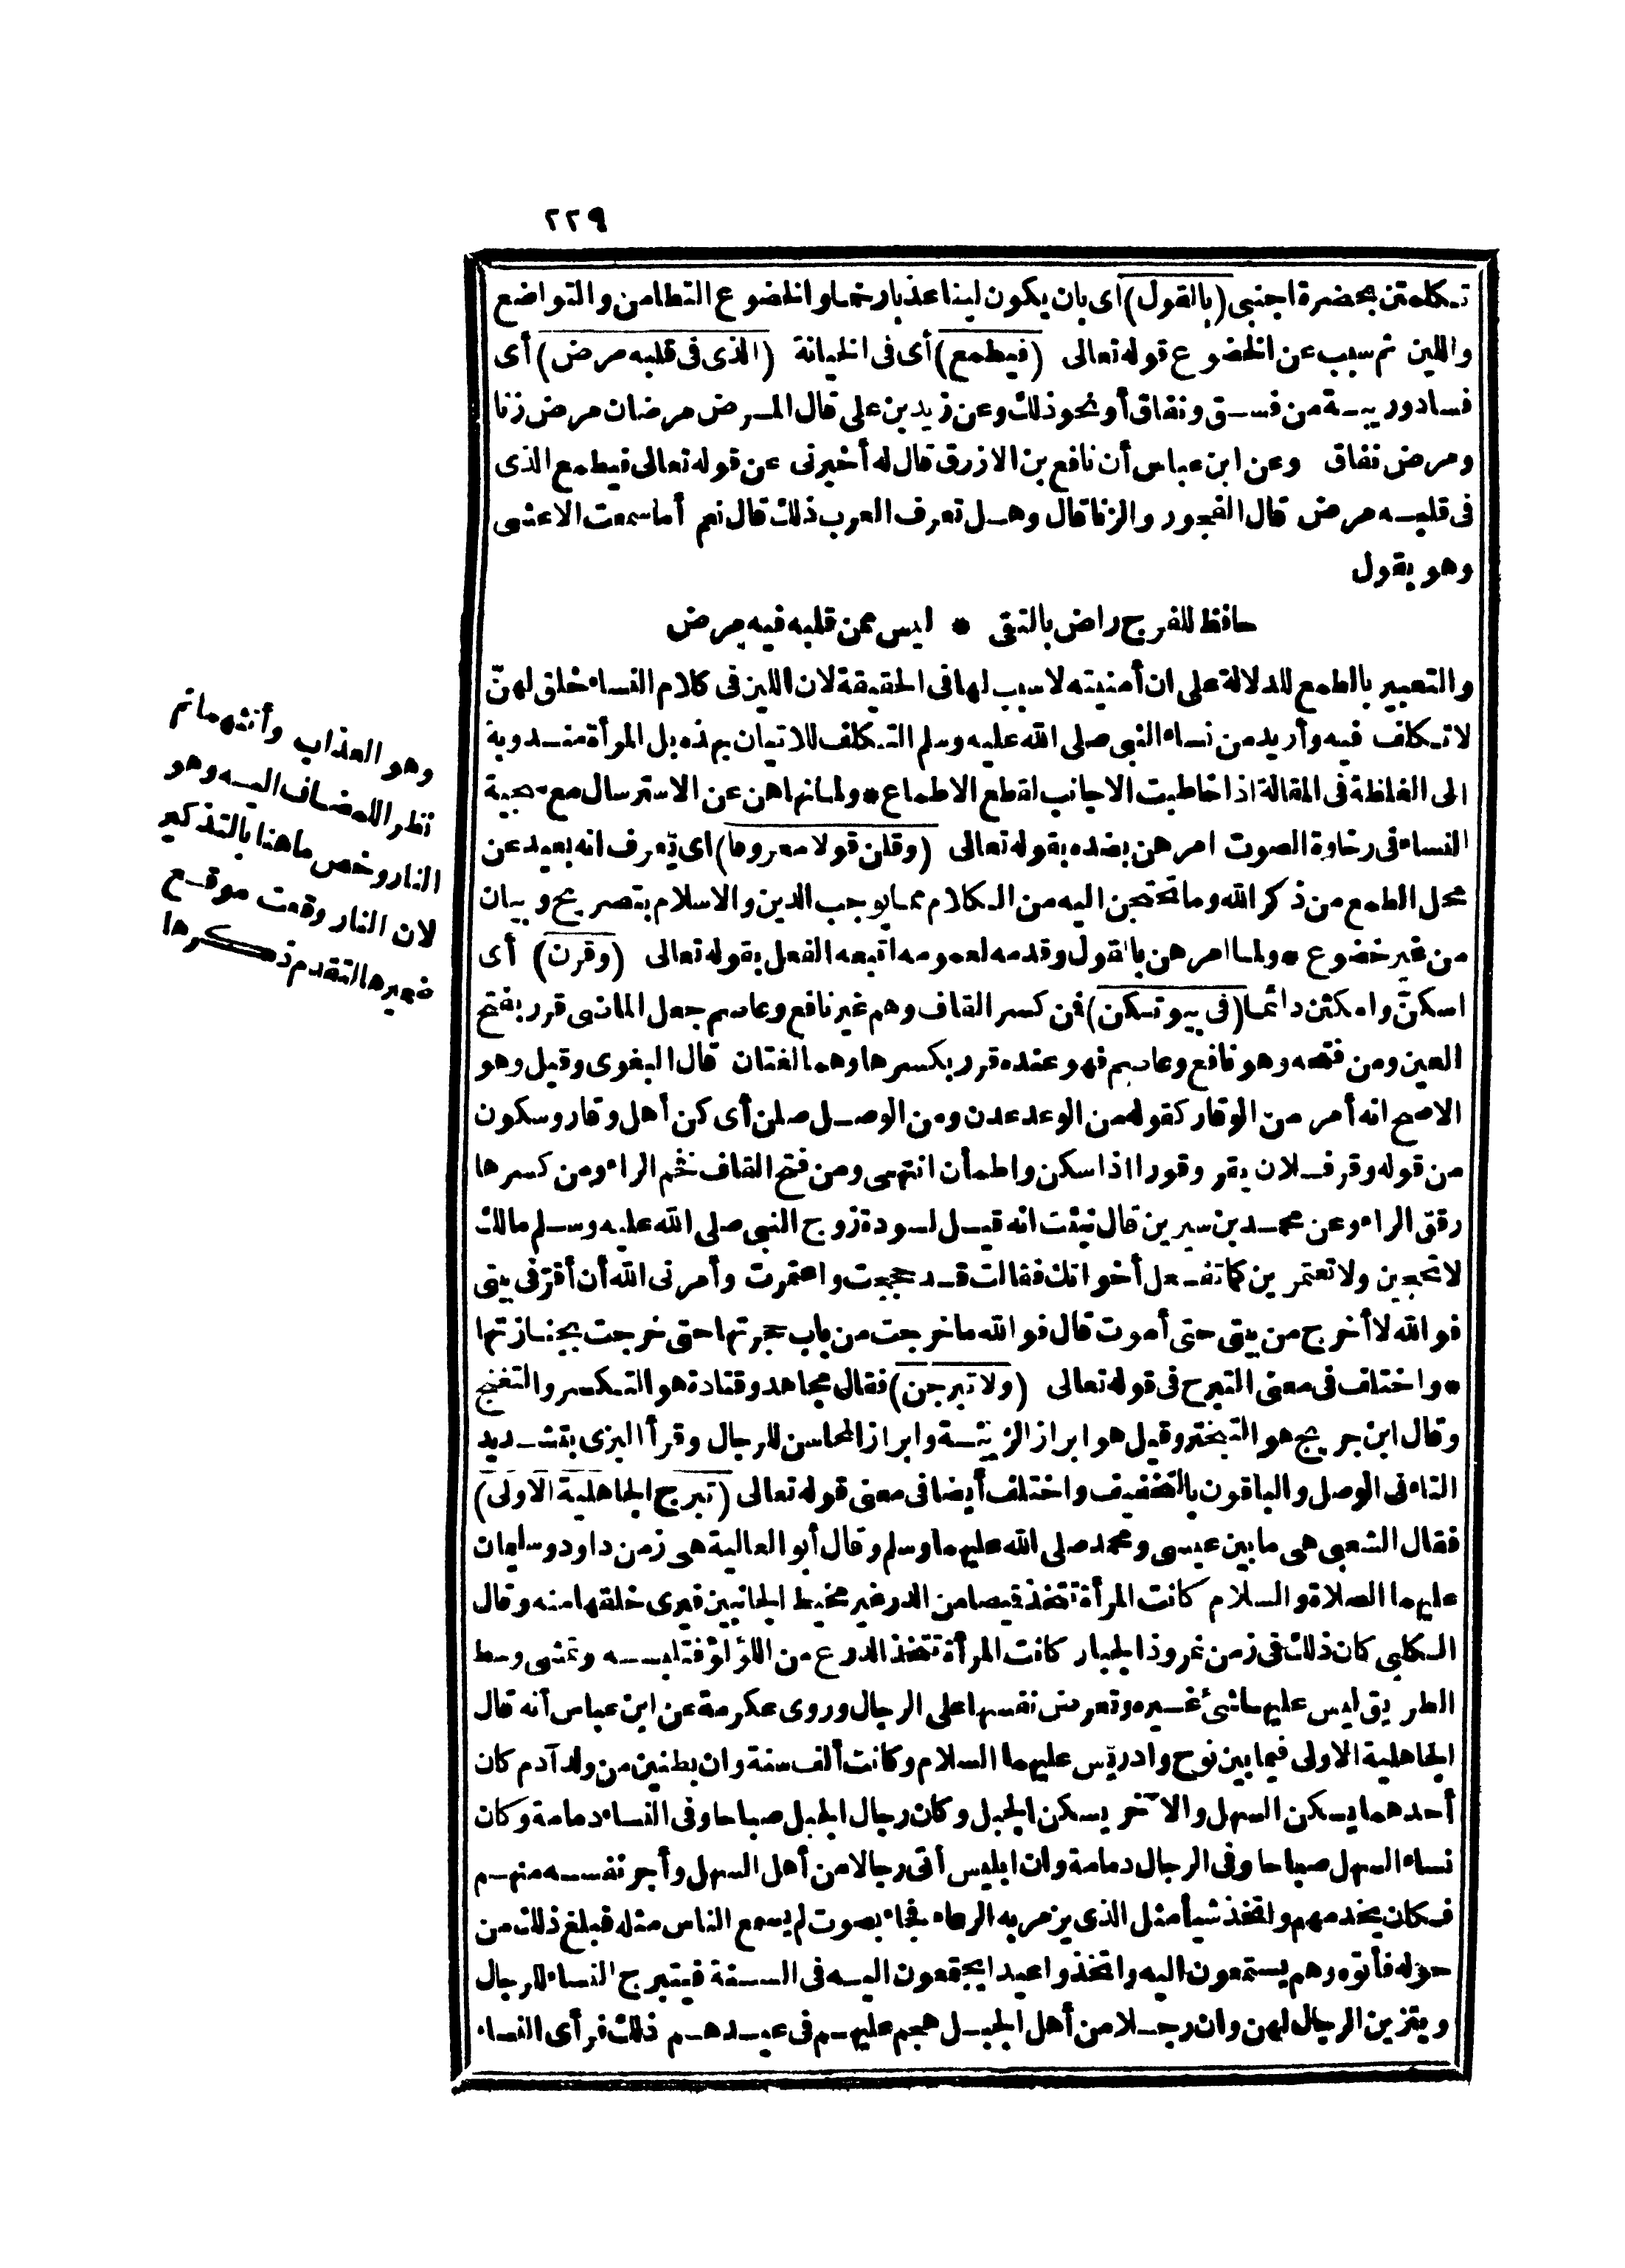 ٢٢٩
تكلمتن بحضرة اجنبى (بالقول) اى بان يكون لينا عذبا رخما والخضوع التطامن والتواضع
واللين ثم سبب عن الخضوع قوله تعالى (فيطمع) أى فى الخيانة (الذى فى قلبه مرض) أى
فساد وريبة من فسق ونفاق أو نحو ذلك وعن زيد بن على قال المرض مرضان مرض زنا
ومرض نفاق وعن ابن عباس أن نافع بن الازرق قال له أخبرنى عن قوله تعالى فيطمع الذى
فى قلبه مرض قال الفجور والزنا قال وهل تعرف العرب ذلك قال نعم أما سمعت الاعشى
وهو يقول
حافظ للفرج راض بالتقى * ليس ممن قلبه فيه مرض
والتعبير بالطمع للدلالة على ان أمنيته لا سبب لها فى الحقيقة لان اللين فى كلام النساء خلق لهنّ
لا تكلف فيه وأريد من نساء النبى صلى الله عليه وسلم التكلف للاتيان بهذه بل المرأة مندوبة
الى الغلظة فى المقالة اذا خاطبت الاجانب لقطع الاطماع * ولما نهاهن عن الاسترسال مع سجية
النساء فى رخاوة الصوت امرهن بضده بقوله تعالى (وقلن قولا معروفا) اى يعرف انه بعيد عن
محل الطمع من ذكر الله وما تحتجن اليه من الكلام مما يوجب الدين والاسلام بتصريح وبيان
من غير خضوع * ولما امرهن بالقول وقدمه لعمومه اتبعه الفعل بقوله تعالى (وقرن) أى
اسكنّ وامكثن دائما (فى بيوتكن) فمن كسر القاف وهم غير نافع وعاصم جعل الماضى قرر بفتح
العين ومن فتحه وهو نافع وعاصم فهو عنده قرر بكسرها وهما لغتان قال البغوى وقيل وهو
الاصح انه أمر من الوقار كقوله من الوعد عدن ومن الوصل صلن أى كن أهل وقار وسكون
من قوله وقر فلان يقر وقورا اذا سكن واطمأن انتهى ومن فتح القاف فخم الراء ومن كسرها
رقق الراء وعن محمد بن سيرين قال نبئت انه قيل لسودة زوج النبى صلى الله عليه وسلم مالك
لا تحجين ولا تعتمرين كما تفعل أخواتك فقالت قد حججت واعتمرت وأمرنى الله أن أقرّ فى بيتى
فوالله لا أخرج من بيتى حتى أموت قال فوالله ما خرجت من باب حجرتها حتى خرجت بجنازتها
* واختلف فى معنى التبرج فى قوله تعالى (ولا تبرجن) فقال مجاهد وقتادة هو التكسر والتغنج
وقال ابن جريج هو التبختر وقيل هو ابراز الزينة وابراز المحاسن للرجال وقرأ البزى بتشديد
التاء فى الوصل والباقون بالتخفيف واختلف أيضا فى معنى قوله تعالى (تبرج الجاهلية الاولى)
فقال الشعبى هى ما بين عيسى ومحمد صلى الله عليهما وسلم وقال أبو العالية هى زمن داود وسليمان
عليهما الصلاة والسلام كانت المرأة تتخذ قميصا من الدر غير مخيط الجانبين فيرى خلقها منه وقال
الكلبى كان ذلك فى زمن نمروذ الجبار كانت المرأة تتخذ الدرع من اللؤلؤ فتلبسه وتمشى وسط
الطريق ليس عليها شئ غيره وتعرض نفسها على الرجال وروى عكرمة عن ابن عباس أنه قال
الجاهلية الاولى فيما بين نوح وادريس عليهما السلام وكانت ألف سنة وان بطنين من ولد آدم كان
أحدهما يسكن السهل والآخر يسكن الجبل وكان رجال الجبل صباحا وفى النساء دمامة وكان
نساء السهل صباحا وفى الرجال دمامة وان ابليس أتى رجلا من أهل السهل وأجر نفسه منهم
فكان يخدمهم واتخذ شيأ مثل الذى يزمر به الرعاء فجاء بصوت لم يسمع الناس مثله فبلغ ذلك من
حوله فأتوه وهم يستمعون اليه واتخذوا عيدا يجتمعون اليه فى السنة فيتبرج النساء للرجال
ويتزين الرجال لهن وان رجلا من أهل الجبل هجم عليهم فى عيدهم ذلك فرأى النساء
وهو العذاب وأنثهما ثم
نظر اللمضاف اليه وهو
النار وخص ما هنا بالتذكير
لان النار وقعت موقع
ضميرها لتقدم ذكرها